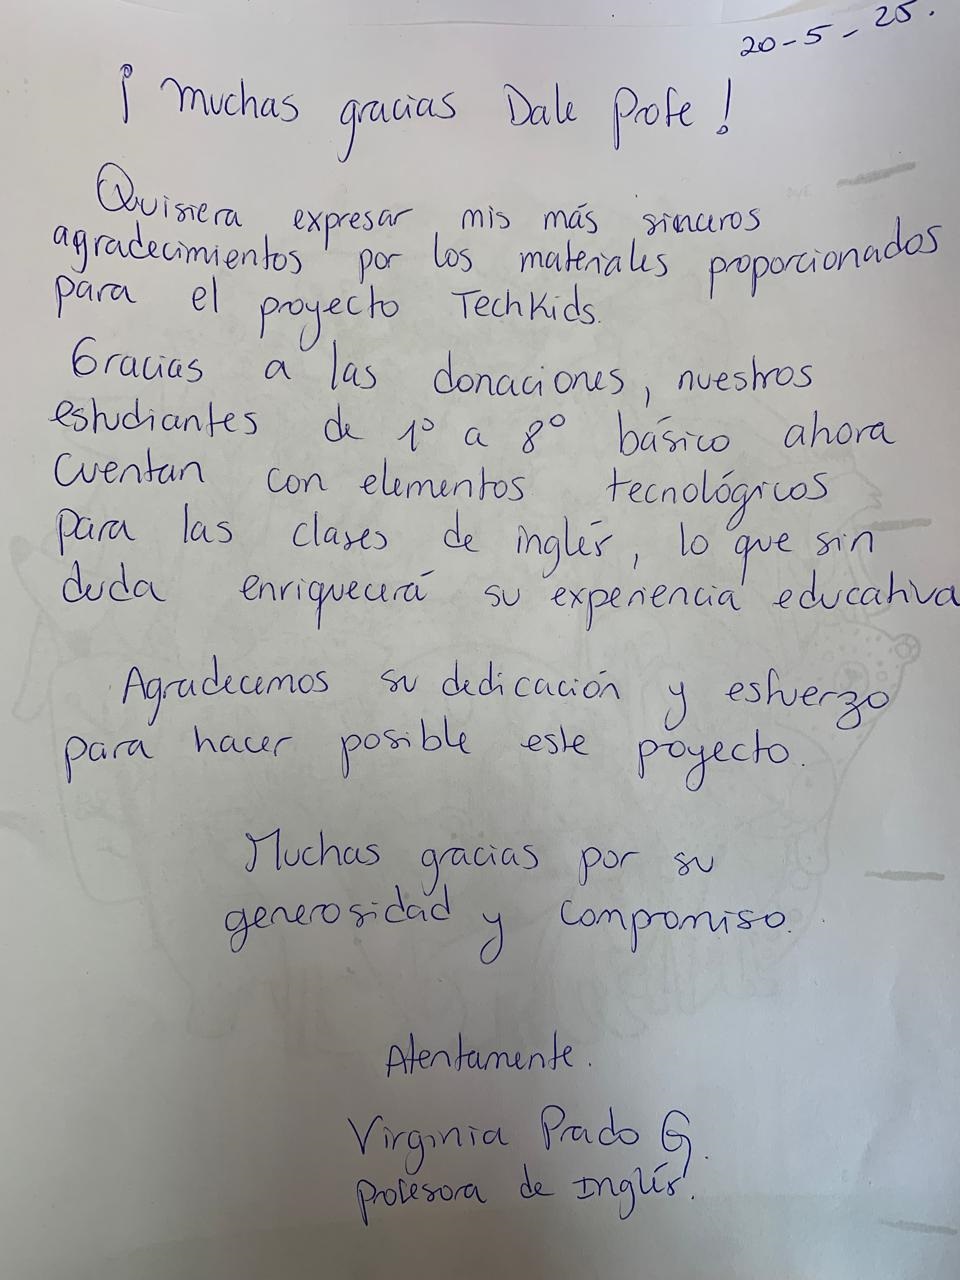 20-5-25.
¡Muchas gracias Dale Profe!
Quisiera expresar mis más sinceros
agradecimientos por los materiales proporcionados
para el proyecto TechKids.
Gracias a las donaciones, nuestros
estudiantes de 1° a 8° básico ahora
cuentan con elementos tecnológicos
para las clases de inglés, lo que sin
duda enriquecerá su experiencia educativa
Agradecemos su dedicación y esfuerzo
para hacer posible este poyecto.
Muchas gracias por su
generosidad y compromiso.
Atentamente.
Virginia Prado G.
Profesora de Inglés.